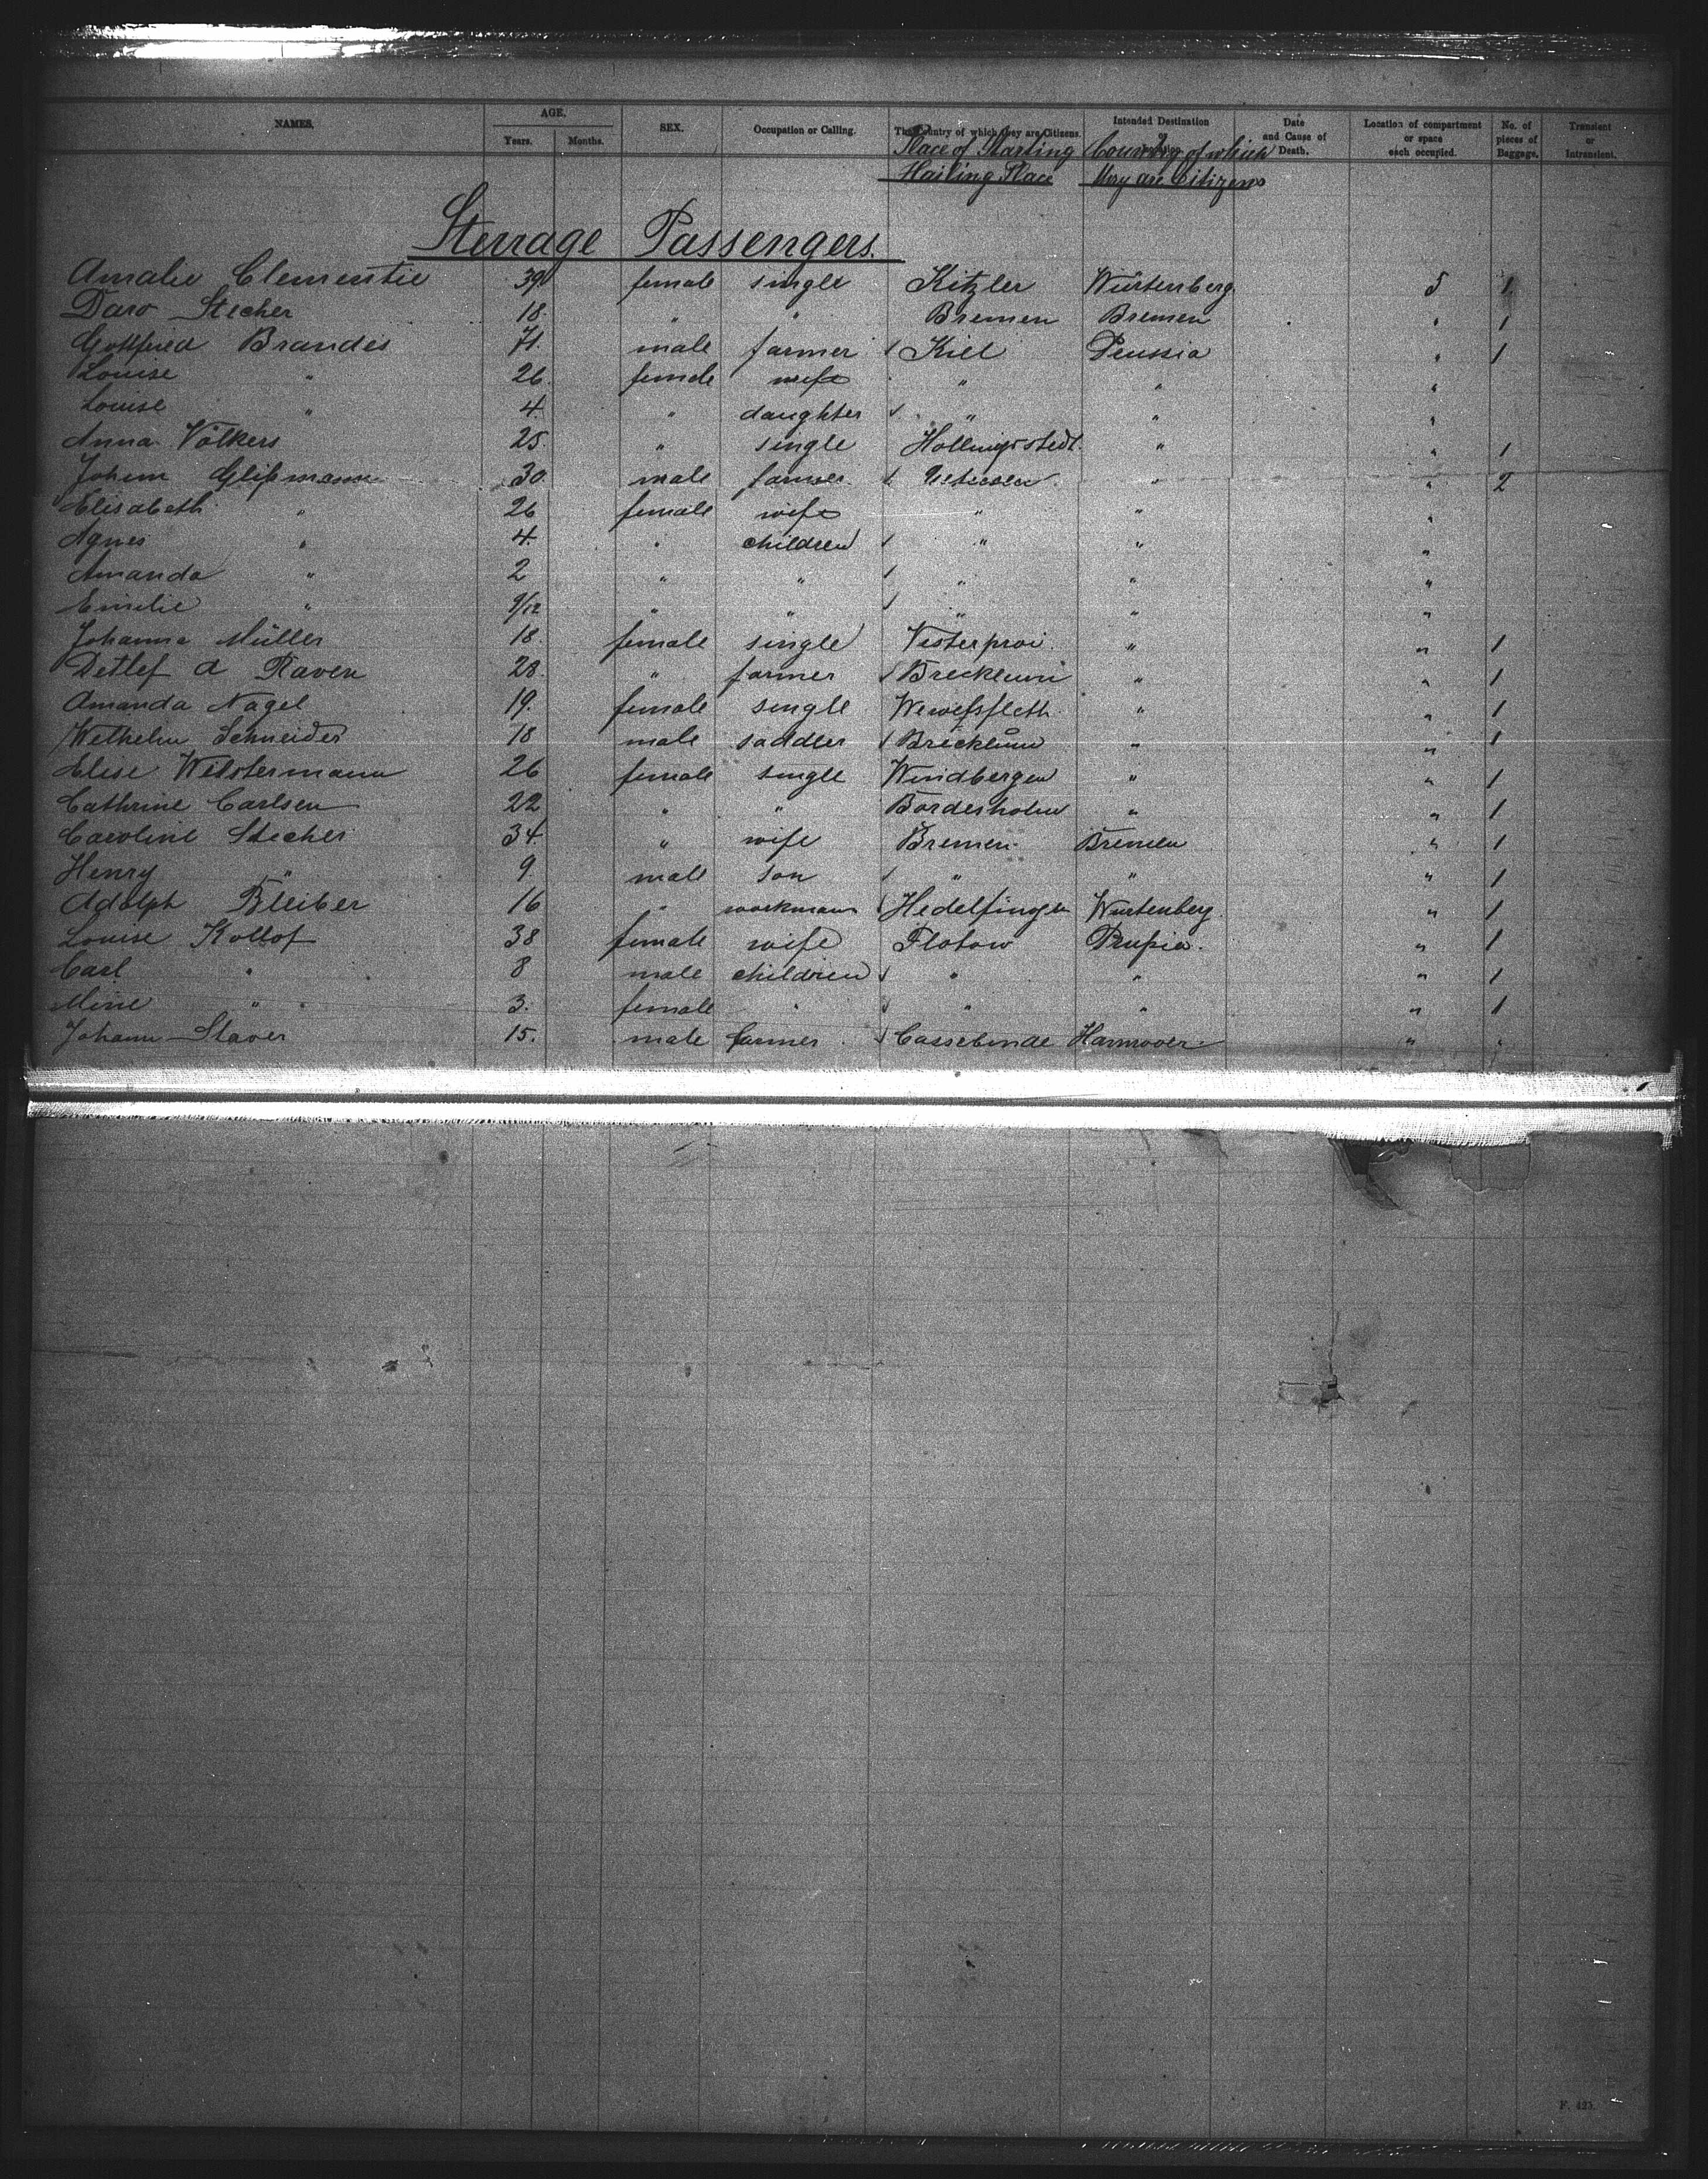 NAMES. AGE. Years. Months. SEX. Occupation or Calling. The Country of which they are Citizens. Intended Destination or Date and Cause of Death. Location of compartment or space each occupied. No. of pieces of Baggage. Transient or Intransient.
Place of Starting Country of which
Hailing Place they are Citizens
Sterrage Passengers.
Amalie Clementie 39 female single Kitzler Würtenberg 5 1
Daro Stecher 18 " " Bremen Bremen " 1
Gottfried Brandis 71 male farmer Kiel Prussia " 1
Louise " 26 female wife " " "
Louise " 4 " daughter " " "
Anna Völkers 25 " single Hollingstedt " " 1
Johem Glißmann 30 male farmer " " 2
Elisabeth " 26 female wife " " "
Agnes " 4 " children " " "
Amanda " 2 " " " " "
Emilie " 9/12 " " " " "
Johanna Müller 18 female single " " 1
Detlef A Raven 28 " farmer Brecklum " " 1
Amanda Nagel 19 female single Wewelsfleth " " 1
Wilhelm Schneider 18 male saddler Brecklum " " 1
Elise Wilstermann 26 female single Windbergen " " 1
Cathrine Carlsen 22 " " Bordesholm " " 1
Caroline Stecher 34 " wife Bremen Bremen " 1
Henry " 9 male son " " " 1
Adolph Bleiber 16 " workman Hedelfingen Wurtenberg " 1
Louise Kollof 38 female wife Flotow Prußia " 1
Carl " 8 male children " " " 1
Mine " 3 female " " " " 1
Johann Staver 15 male farmer Cassebinde Hannover " "
F. 425.